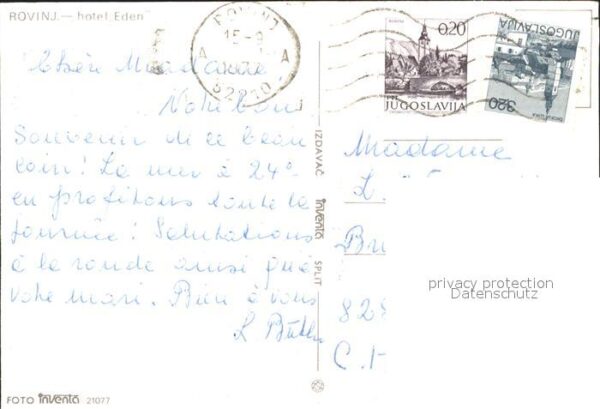 ROVINJ. — hotel Eden
ROVINJ
15-9
A A
Chère Madame
Notre bon
Souvenir de ce beau
coin! La mer à 24°
en profitons toute la
journée! Salutations
à la ronde ainsi qu'à
votre mari. Bien à vous
FOTO inventa 21077
IZDAVAČ inventa SPLIT
0,20
JUGOSLAVIJA
JUGOSLAVIJA
3,20
Madame
L.
Bu
828
C.H
privacy protection
Datenschutz